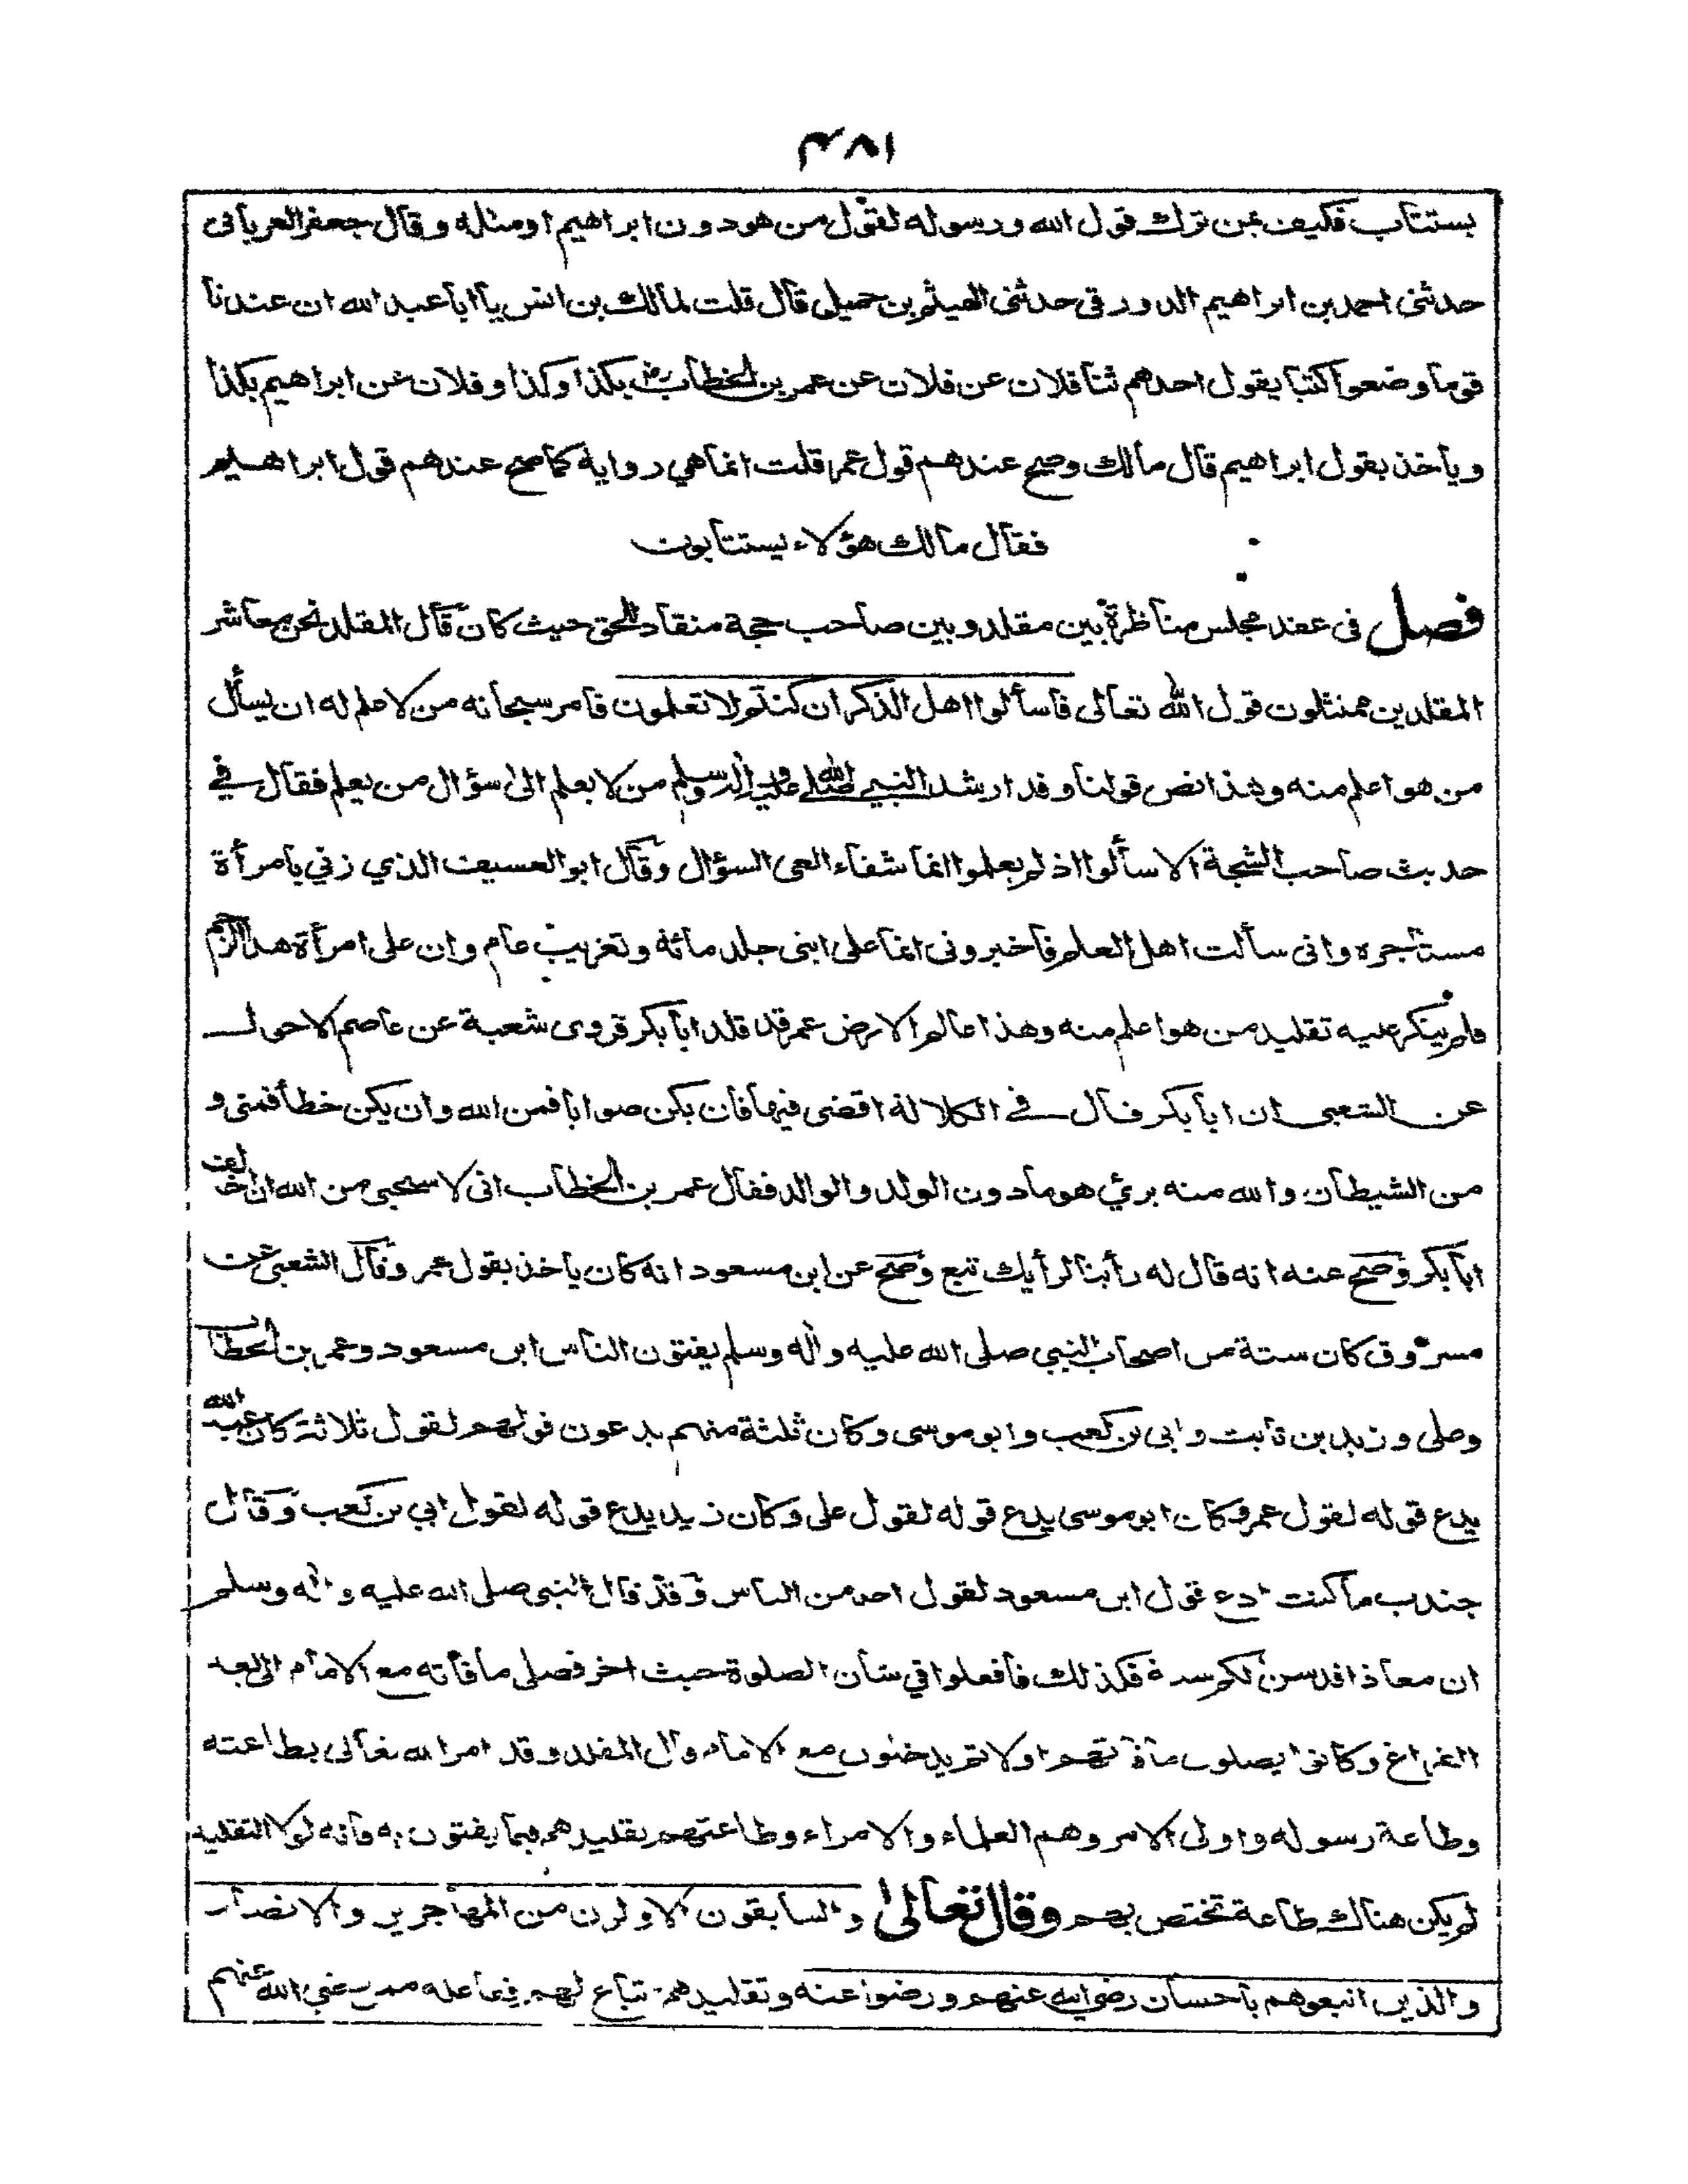 ٤٨١
يستتاب فكيف بمن ترك قول الله ورسوله لقول من هو دون ابراهيم او مثله وقال جعفر الفريابى
حدثنى احمد بن ابراهيم الدورقى حدثنى الهيثم بن جميل قال قلت لمالك بن انس يا ابا عبد الله ان عندنا
قوما وضعوا كتبا يقول احدهم ثنا فلان عن فلان عن عمر بن الخطاب رض بكذا وكذا وفلان عن ابراهيم بكذا
وياخذ بقول ابراهيم قال مالك وصح عندهم قول عمر قلت انما هي رواية كما صح عندهم قول ابراهيم
فقال مالك هؤلاء يستتابون
فصل فى عقد مجلس مناظرة بين مقلد وبين صاحب حجة منقاد للحق حيث كان قال المقلد نحن معاشر
المقلدين ممتثلون قول الله تعالى فاسألوا اهل الذكر ان كنتم لا تعلمون فامر سبحانه من لا علم له ان يسأل
من هو اعلم منه وهذا نص قولنا وقد ارشد النبي صلى الله عليه واله وسلم من لا يعلم الى سؤال من يعلم فقال في
حديث صاحب الشجة الا سألوا اذ لم يعلموا انما شفاء العى السؤال وقال ابو العسيف الذي زني بامرأة
مستاجره وانى سألت اهل العلم فاخبرونى انما على ابنى جلد مائة وتغريب عام وان على امرأة هذا الرجم
فلم ينكر عليه تقليد من هو اعلم منه وهذا عالم الارض عمر قد قلد ابا بكر فروى شعبة عن عاصم الاحول
عن الشعبى ان ابا بكر قال في الكلالة اقضى فيها فان يكن صوابا فمن الله وان يكن خطأ فمنى و
من الشيطان والله منه برئ هو ما دون الولد والوالد فقال عمر بن الخطاب انى لاستحيى من الله ان اخالف
ابا بكر وصح عنه انه قال له رأينا لرأيك تبع وصح عن ابن مسعود انه كان ياخذ بقول عمر وقال الشعبى عن
مسروق كان ستة من اصحاب النبي صلى الله عليه واله وسلم يفتون الناس ابن مسعود وعمر بن الخطاب
وعلى وزيد بن ثابت وابى بن كعب وابو موسى وكان ثلثة منهم يدعون قولهم لقول ثلاثة كان عبد الله
يدع قوله لقول عمر وكان ابو موسى يدع قوله لقول على وكان زيد يدع قوله لقول ابي بن كعب وقال
جندب ما كنت ادع قول ابن مسعود لقول احد من الناس وقد قال النبى صلى الله عليه واله وسلم
ان معاذا قد سن لكم سنة فكذلك فافعلوا في شان الصلوة حيث اخر فصلى ما فاته مع الامام الى بعد
الفراغ وكانوا يصلون ما فاتهم اولا ثم يدخلون مع الامام قال المقلد وقد امر الله تعالى بطاعته
وطاعة رسوله واولى الامر وهم العلماء والامراء وطاعتهم تقليدهم فيما يفتون به فانه لولا التقليد
لم يكن هناك طاعة تختص بهم وقال تعالى والسابقون الاولون من المهاجرين والانصار
والذين اتبعوهم باحسان رضي الله عنهم ورضوا عنه وتقليدهم اتباع لهم ففاعله ممن رضي الله عنهم